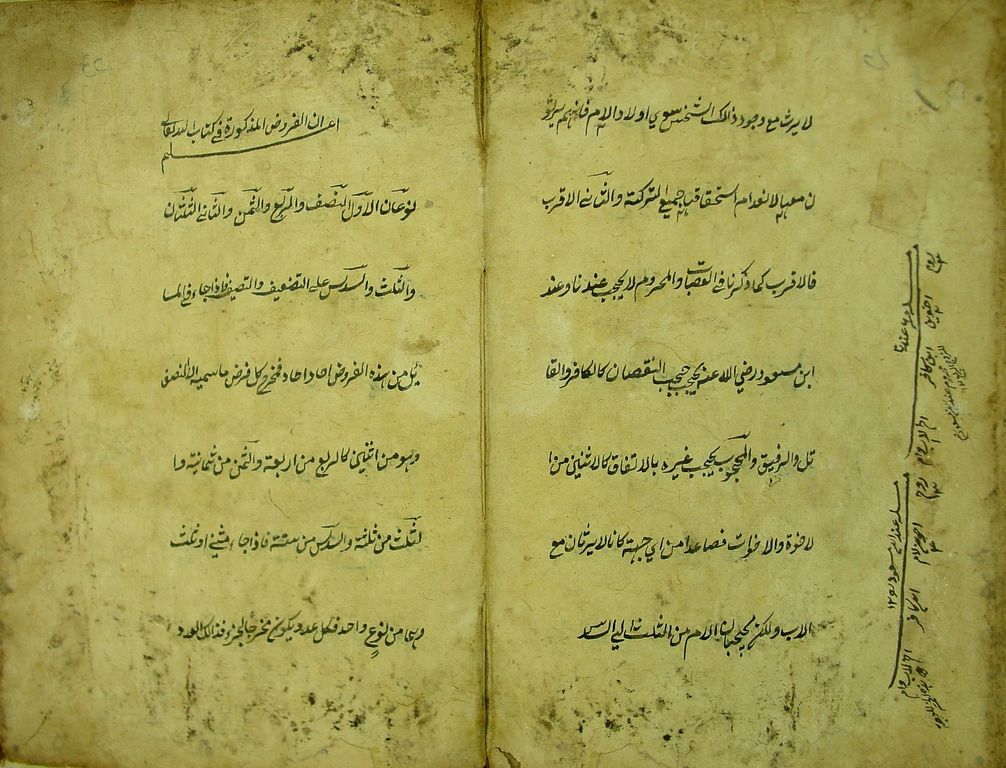 لا يرث مع وجود ذالك الشخص سوي اولاد الام فانهم يرثو
ن معها لانعدام استحقاقها جميع التركة والثاني الاقرب
فالاقرب كما ذكرنا في العصبات والمحروم لا يحجب عندنا وعند
ابن مسعود رضي الله عنه يحجب حجب النقصان كالكافر والقا
تل والرقيق والمحجوب يحجب غيره بالاتفاق كالاثنين من ا
لاخوة والاخوات فصاعدا من اي جهة كانا لا يرثان مع
الاب ولكن يحجبان الام من الثلث الي السدس
اعلم ان الفروض المذكورة في كتاب الله تعالي
نوعان الاول النصف والربع والثمن والثاني الثلثان
والثلث والسدس علي التضعيف والتنصيف فاذا جاء في المسا
يل من هذه الفروض احاد احاد فمخرج كل فرض ما سميه الا النصف
وهو من اثنين كالربع من اربعة والثمن من ثمانية وا
لثلث من ثلثة والسدس من ستة فاذا جاء مثني او ثلث
وهما من نوع واحد فكل عدد يكون مخرجا لجزء فذالك العدد
مسئلة عندنا
زوج
اخوين
ابن كافر
ام
زوج
ام